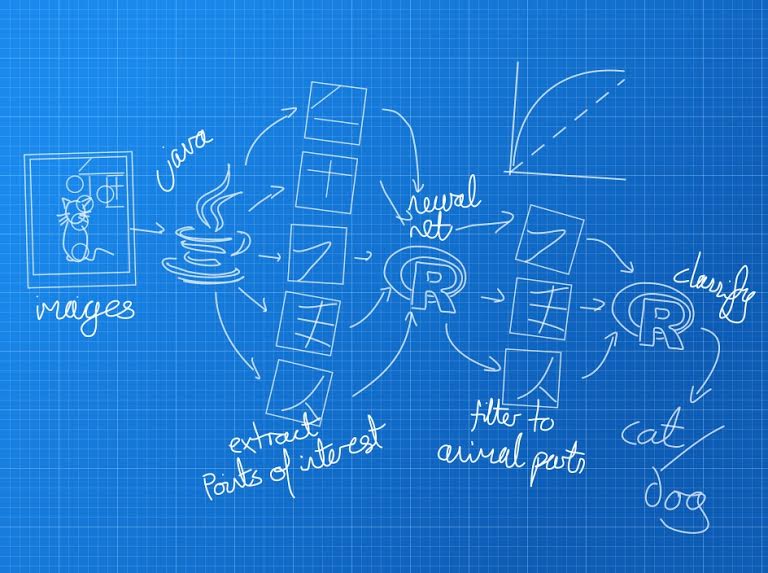 images
java
extract
Points of interest
neural
net
R
filter to
animal parts
R
classify
cat/
dog